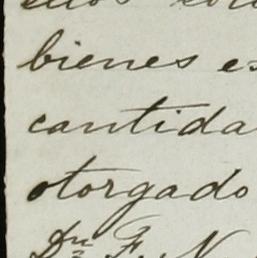 bienes es
cantida
otorgado
Dn F. N